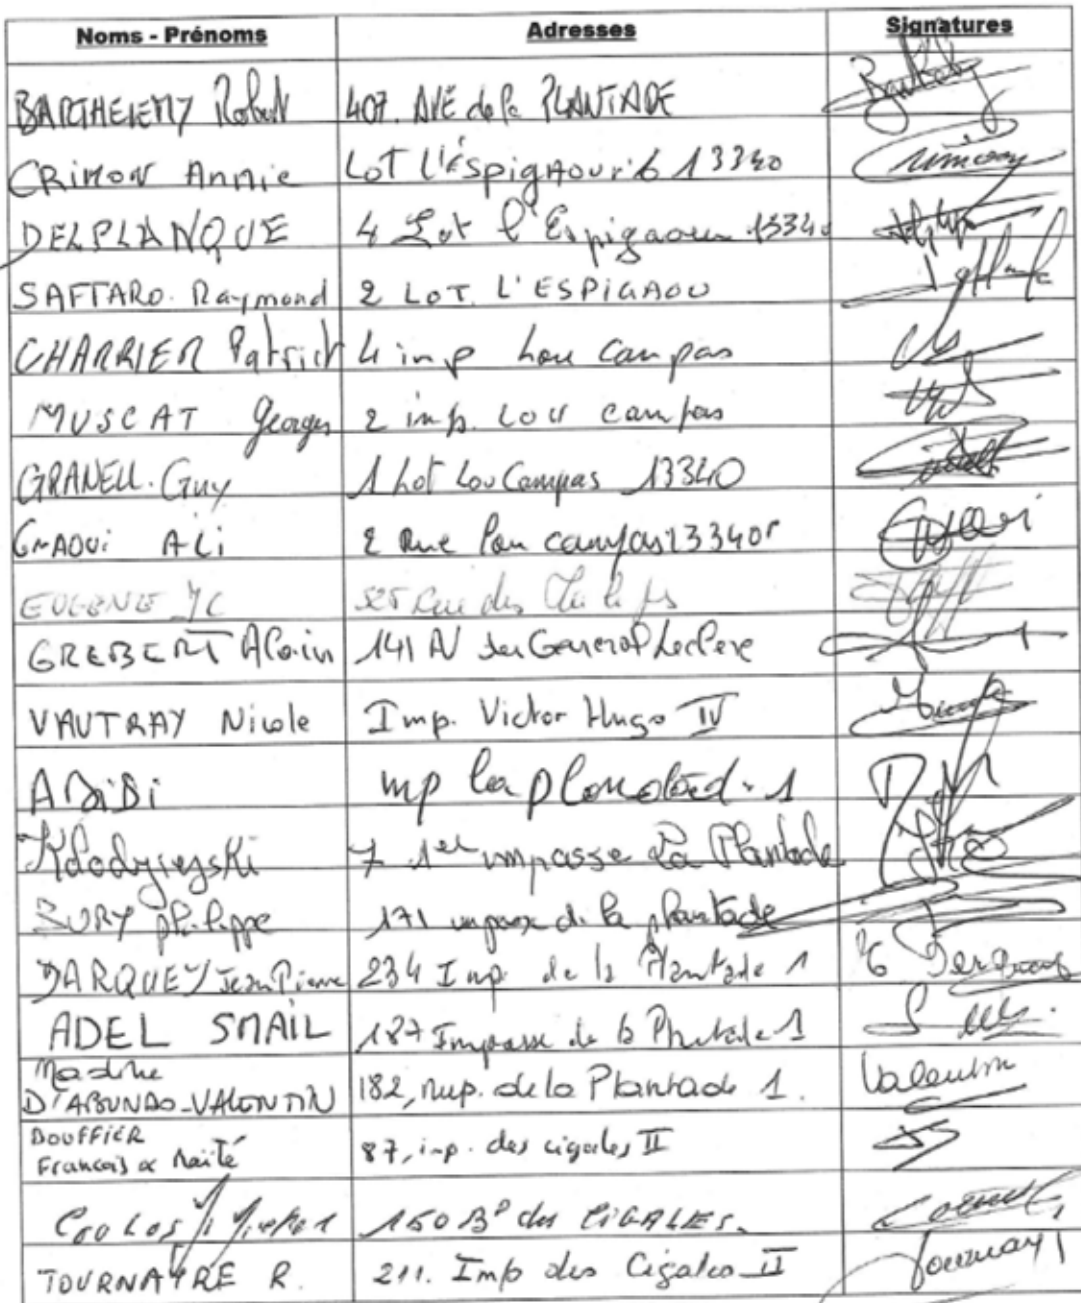 Noms - Prénoms Adresses Signatures
BARTHELEMY Robert 407. AVE de la PLANTADE
CRIMON Annie LOT L'ESpigAou n°6 13340
DELPLANQUE 4 Lot l'Espigaou 13340
SAFTARO. Raymond 2 LOT. L'ESPIGAOU
CHARRIER Patrick 4 imp Lou Campas
MUSCAT Georges 2 imp. Lou campas
GRANELL. Guy 1 Lot Lou Campas 13340
GMAOUi ALi 2 Rue Lou campas 13340
EUGENE JC 525 Rue des
GREBERT Alain 141 AV du General Leclerc
VAUTRAY Nicole Imp. Victor Hugo IV
ABiBi imp la plantade. 1
7 1er impasse La Plantade
SURY philippe 171 impasse de la plantade
DARQUEY Jean Pierre 234 Imp de la Plantade 1
ADEL SMAIL 187 Impasse de la Plantade 1
Madme
D'ABUNDO-VALENTIN 182, imp. de la Plantade 1. Valentin
BOUFFIER
François & Maïté 87, imp. des cigales II
150 Bd des CIGALES.
TOURNAYRE R. 211. Imp des Cigales II